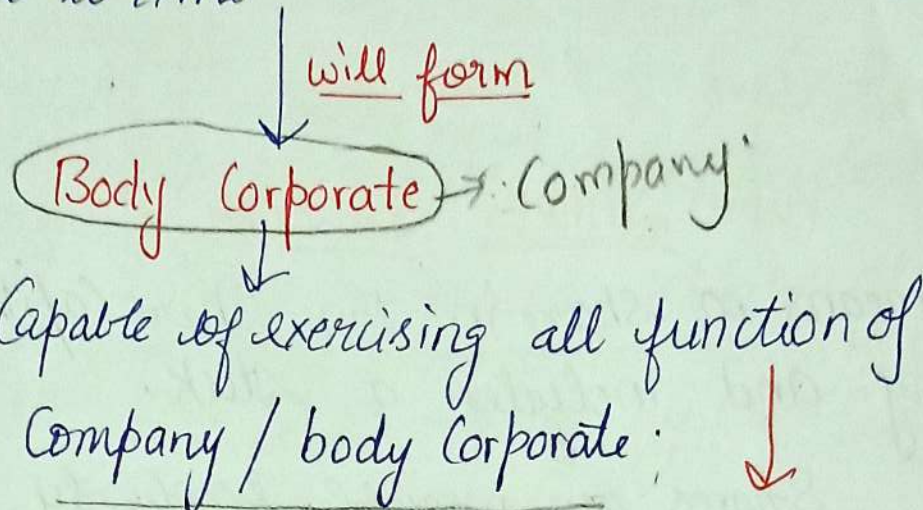 will form
Body Corporate → Company
Capable of exercising all function of
Company / body Corporate.